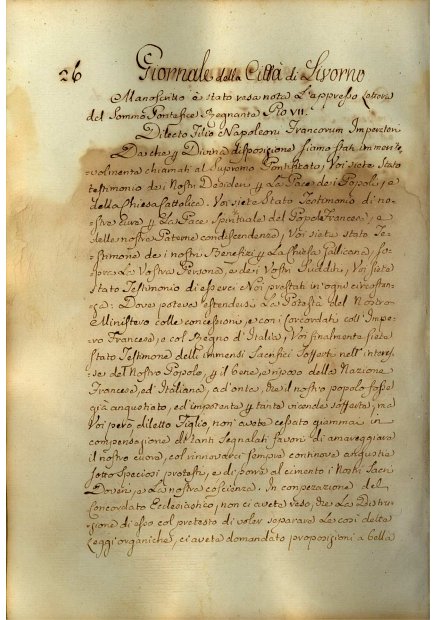 26 Giornale della Città di Livorno
Manoscritto è stato resa nota L'appresso Lettera
del Sommo Pontefice Regnante Pio VII.
Dilecto Filio Napoleoni Francorum Imperatori
Da che p Divina disposizione siamo stati immerite=
volmente chiamati al Supremo Pontificato, Voi siete Stato
testimonio dei Nostri Desiderj p La Pace dei Popoli, e
della Chiesa Cattolica. Voi siete Stato Testimonio di no=
stre cure p La Pace Spirituale del Popolo Francese, e
delle nostre Paterne condiscendenze, Voi siete stato Te=
stimone dei nostri Benefizj p La Chiesa Gallicana,
La Vostra Persona, e dei Vostri Sudditi, Voi siete
Stato Testimonio di esserci Noi prestati in ogni circostan=
za. Dove poteva estendersi La Potestà del Nostro
Ministero colle concessioni, e con i concordati coll' Impe=
ro Francese, e col Regno d'Italia, Voi finalmente siete
Stato Testimone dell' immensi Sacrifici Sofferti nell' interes=
se del Nostro Popolo, p il bene, e riposo della Nazione
Francese, ed Italiana, ad onta, che il nostro popolo fosse
già angustiato, ed impotente p tante vicende sofferte, ma
Voi però, diletto Figlio, non avete cessato giammai in
compensazione di tanti Segnalati favori di amareggiare
il nostro cuore, col rinnovarci sempre continove angustie
sotto Speciosi pretesti, e di porre al cimento i Nostri Sacri
Doveri, e La nostra coscienza. In del
Concordato Ecclesiastico, non ci avete reso, che La Distru=
zione di esso col pretesto di voler separare Le così dette
Leggi organiche, ci avete domandato proposizioni a bella